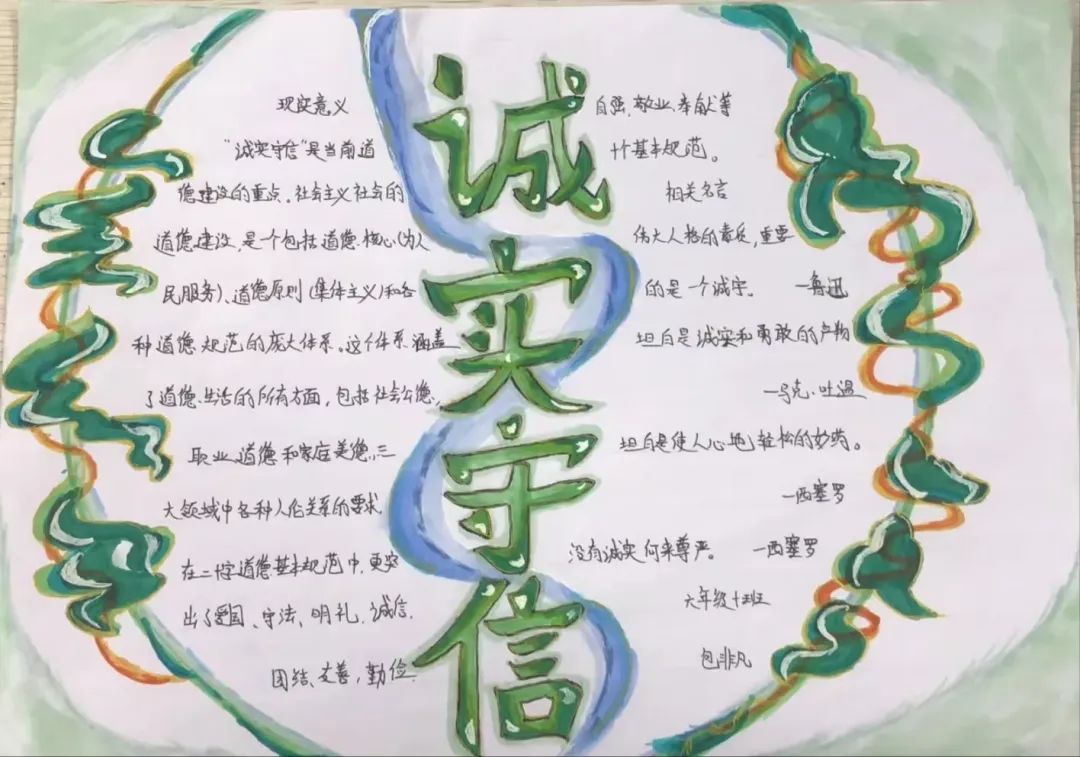 诚实守信
现实意义
“诚实守信”是当前道
德建设的重点。社会主义社会的
道德建设,是个包括道德核心(为人
民服务)、道德原则(集体主义)和各
种道德规范的庞大体系。这个体系涵盖
了道德生活的所有方面,包括社会公德、
职业道德和家庭美德,三
大领域中各种人伦关系的要求
在二十字道德基本规范中,更突
出了爱国、守法、明礼、诚信、
团结、友善,勤俭
自强、敬业、奉献等
十个基本规范。
相关名言
伟大人格的素质,重要
的是一个诚字。 —鲁迅
坦白是诚实和勇敢的产物
—马克·吐温
坦白是使人心地轻松的妙药。
—西塞罗
没有诚实何来尊严。 —西塞罗
六年级十班
包非凡